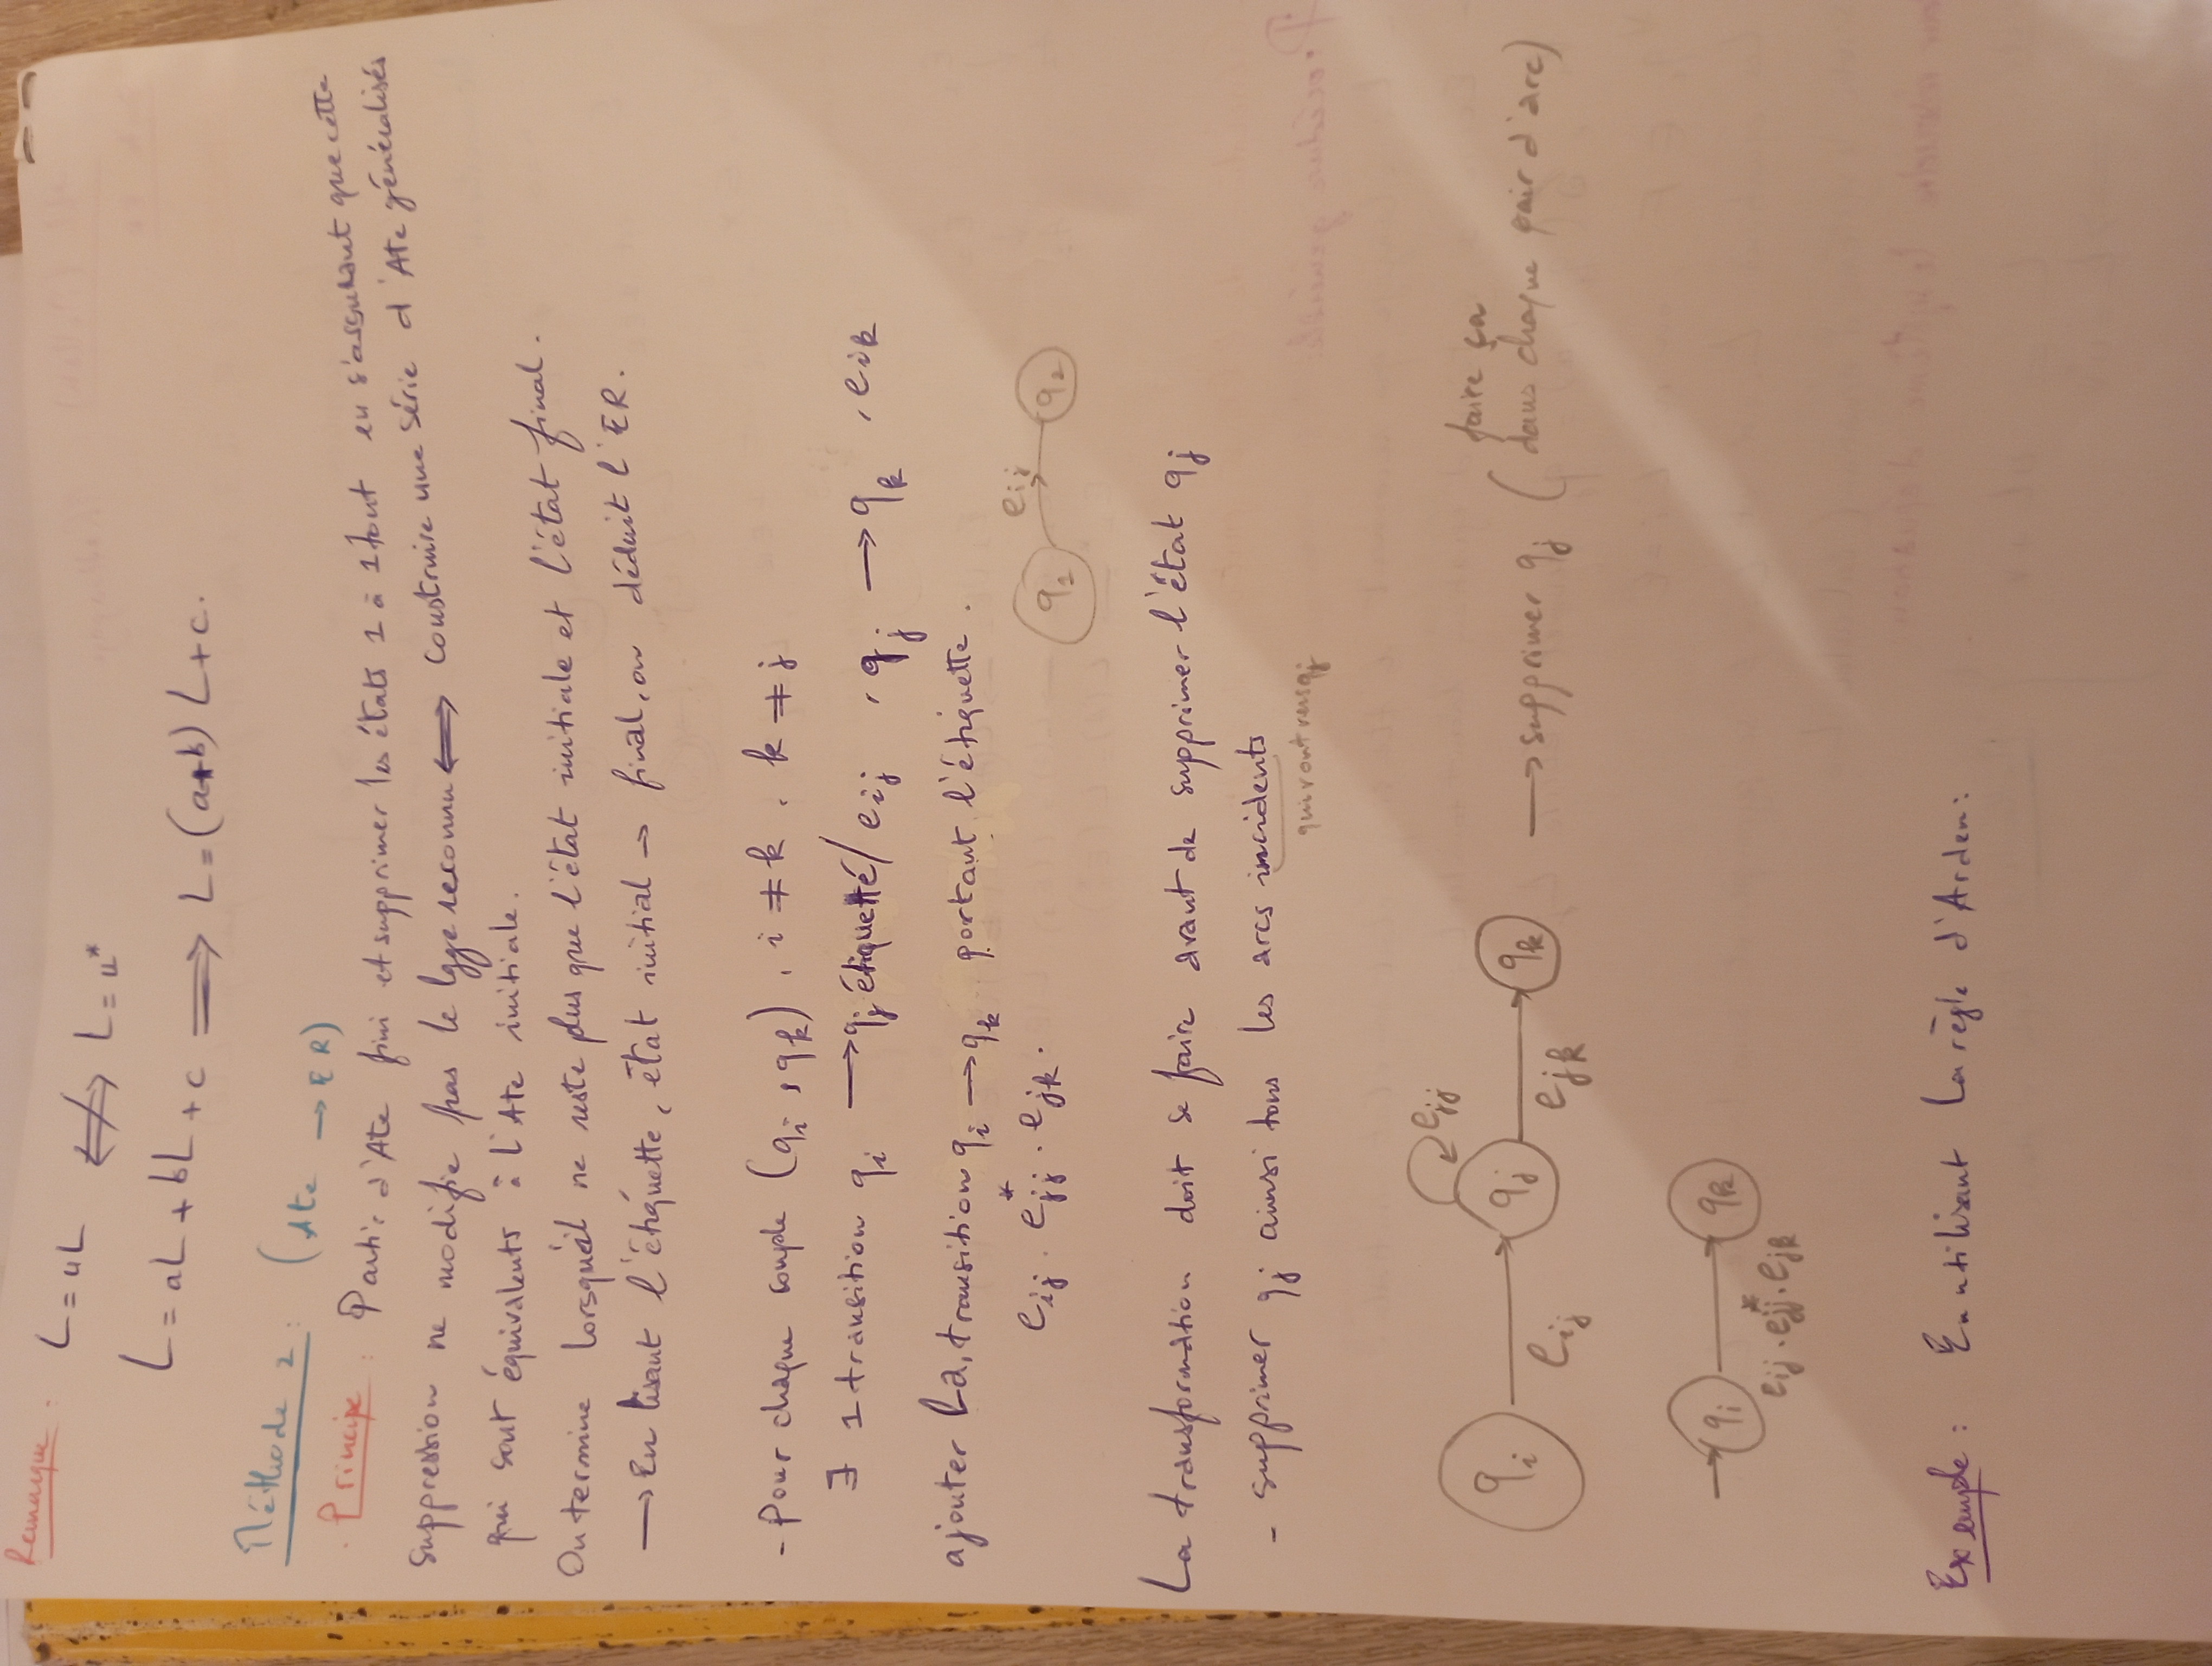 Remarque :
L = uL ⇎ L = u*
L = aL + bL + c ⟹ L = (a+b) L + c.
Méthode 2 : (Ate → ER)
. Principe : Partir d'Ate fini et supprimer les états 1 à 1 tout en s'assurant que cette
suppression ne modifie pas le lgge reconnu ⟺ construire une série d'Ate généralisés
qui sont équivalents à l'Ate initiale.
On termine lorsqu'il ne reste plus que l'état initiale et l'état final.
→ En lisant l'étiquette, état initial → final, on déduit l'ER.
- Pour chaque couple (qi, qk), i ≠ k, k ≠ j
∃ 1 transition qi → qj étiquetté/ eij, qj → qk, eik
ajouter la transition qi → qk portant l'étiquette.
eij . ejj* . ejk.
q1 eij q2
La transformation doit se faire avant de supprimer l'état qj
- supprimer qj ainsi tous les arcs incidents
qui vont vers qj
qi eij qj ejj ejk qk → supprimer qj (faire ça
dans chaque pair d'arc)
qi eij.ejj*.ejk qk
Exemple : En utilisant la règle d'Arden :